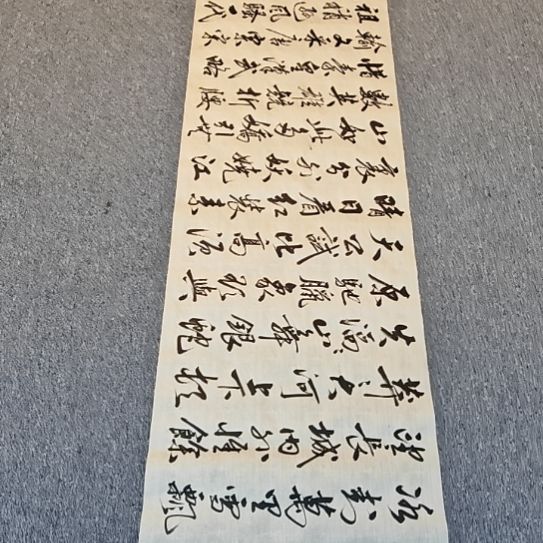 冰封萬里雪飄
望長城內外惟餘
莽莽大河上下頓
失滔滔山舞銀蛇
原馳臘象欲與
天公試比高須
晴日看紅裝素
裹分外妖嬈江
山如此多嬌引無
數英雄競折腰
惜秦皇漢武略
輸文采唐宗宋
祖稍遜風騷一代